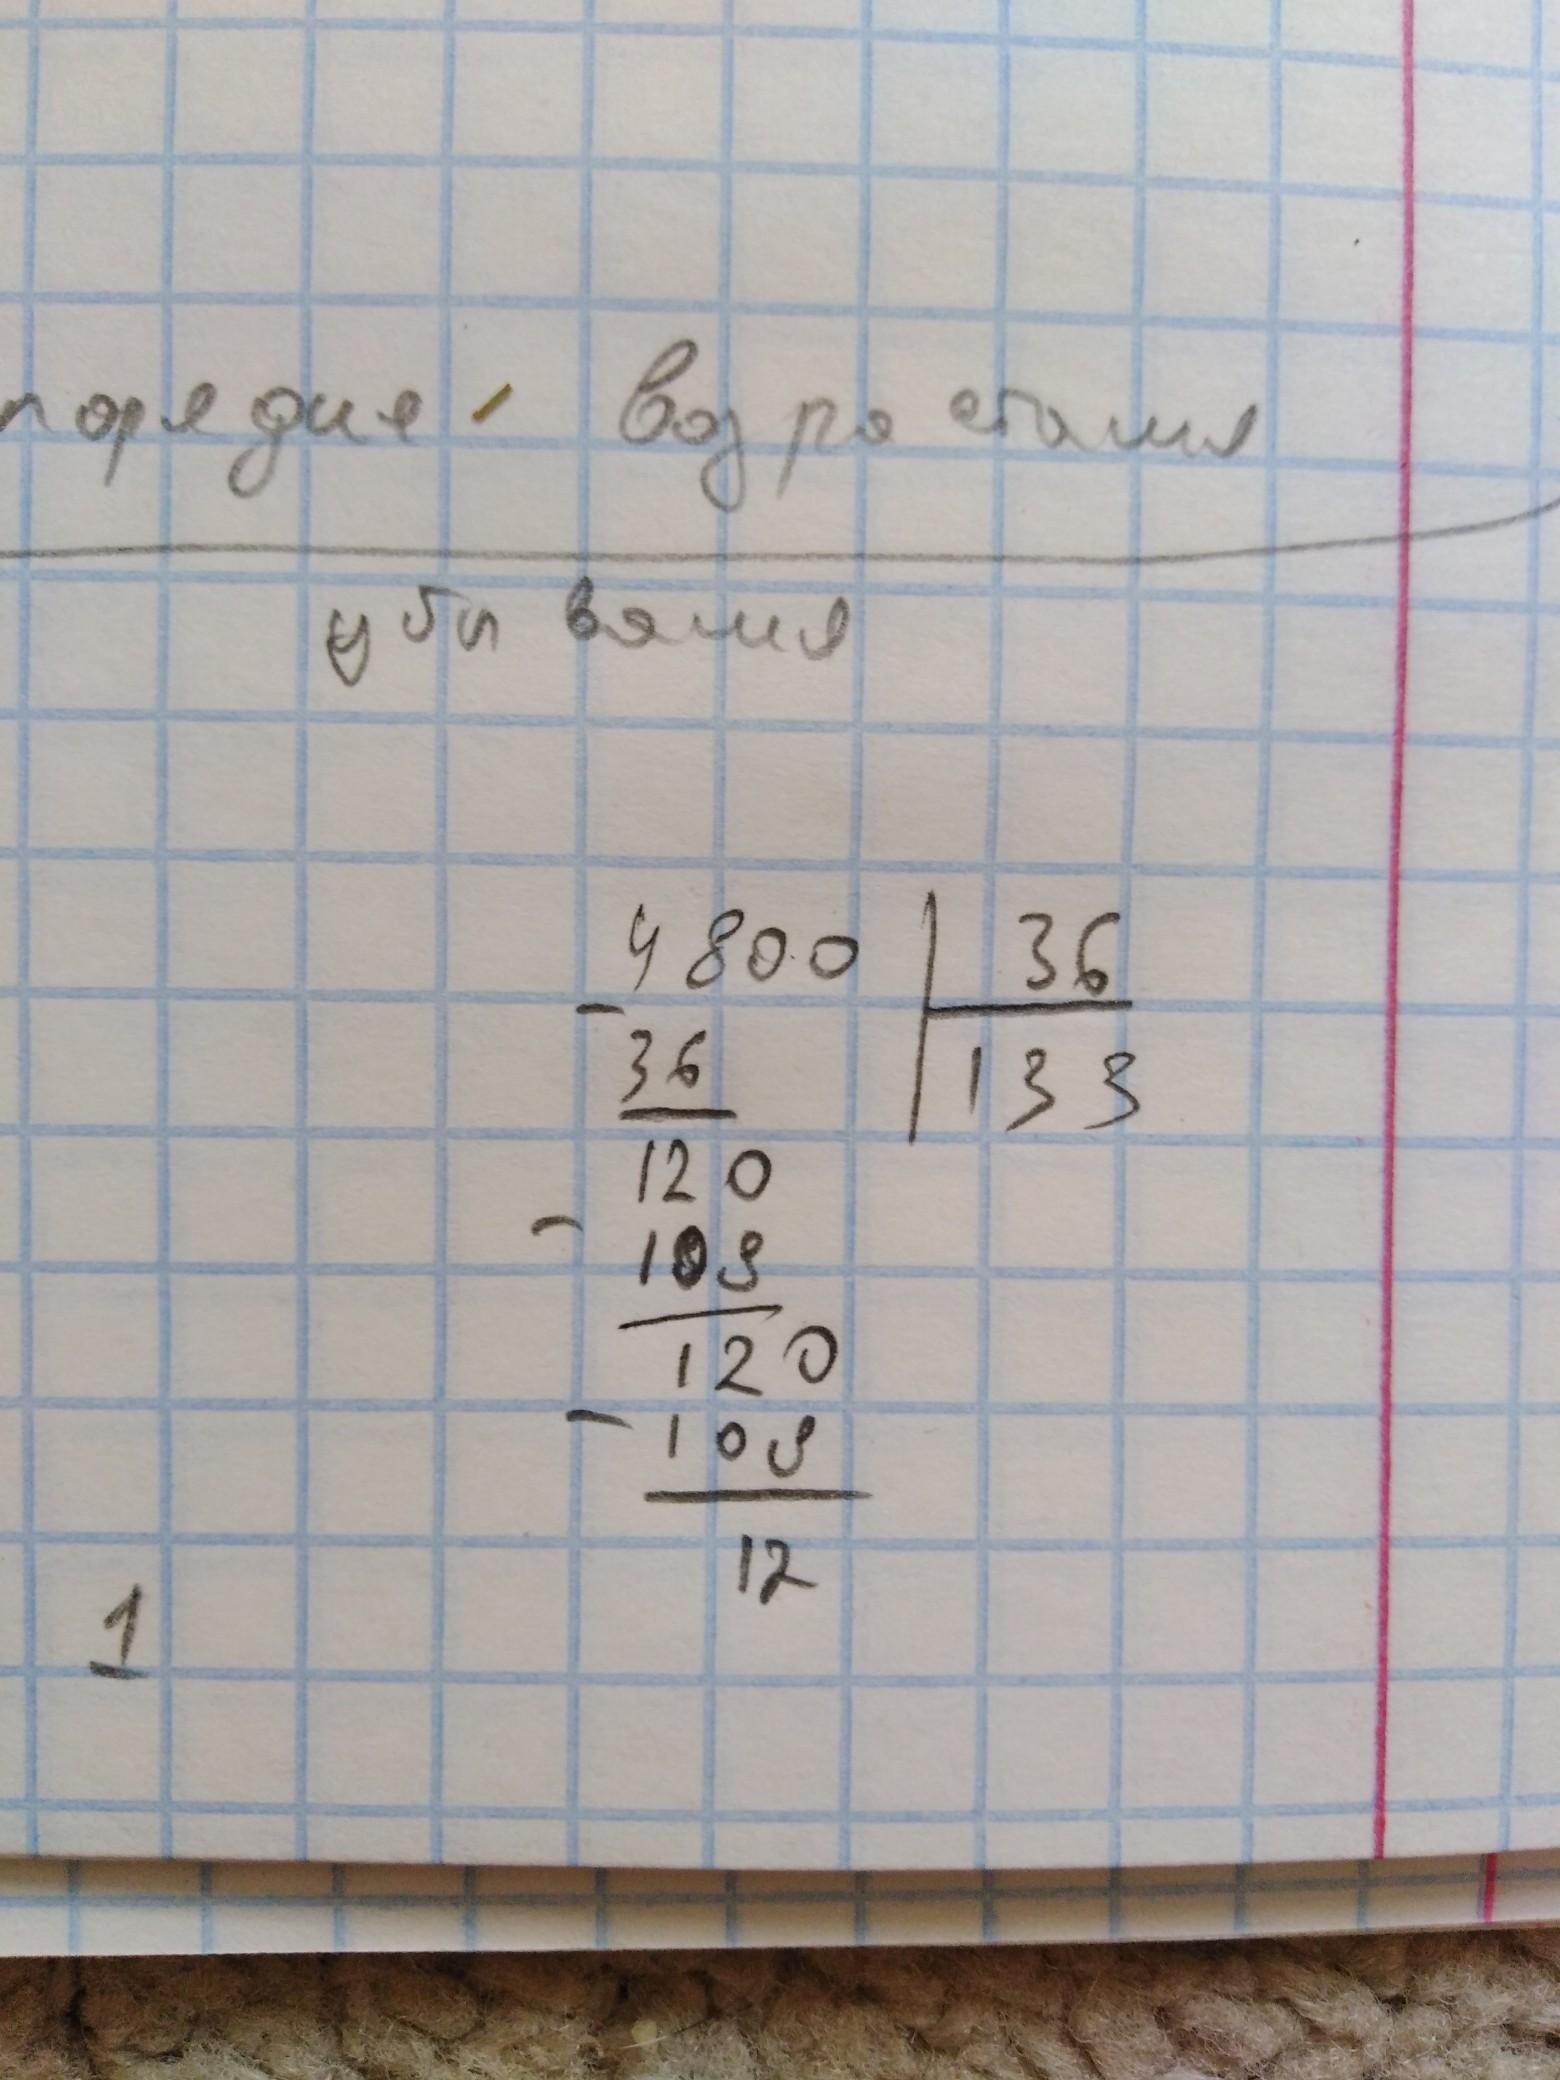 порядке возростания
убывания
4800 36
-
36 133
120
-
108
120
-
108
12
1